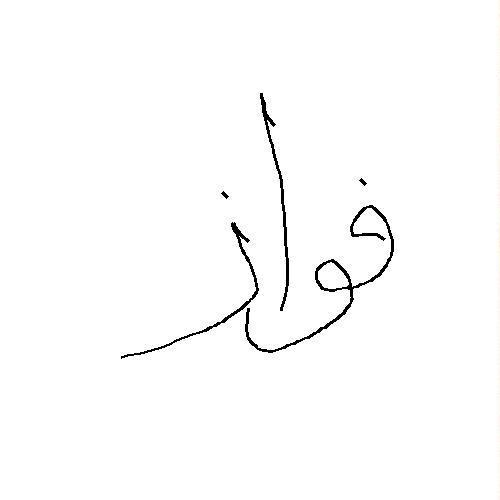 فواز